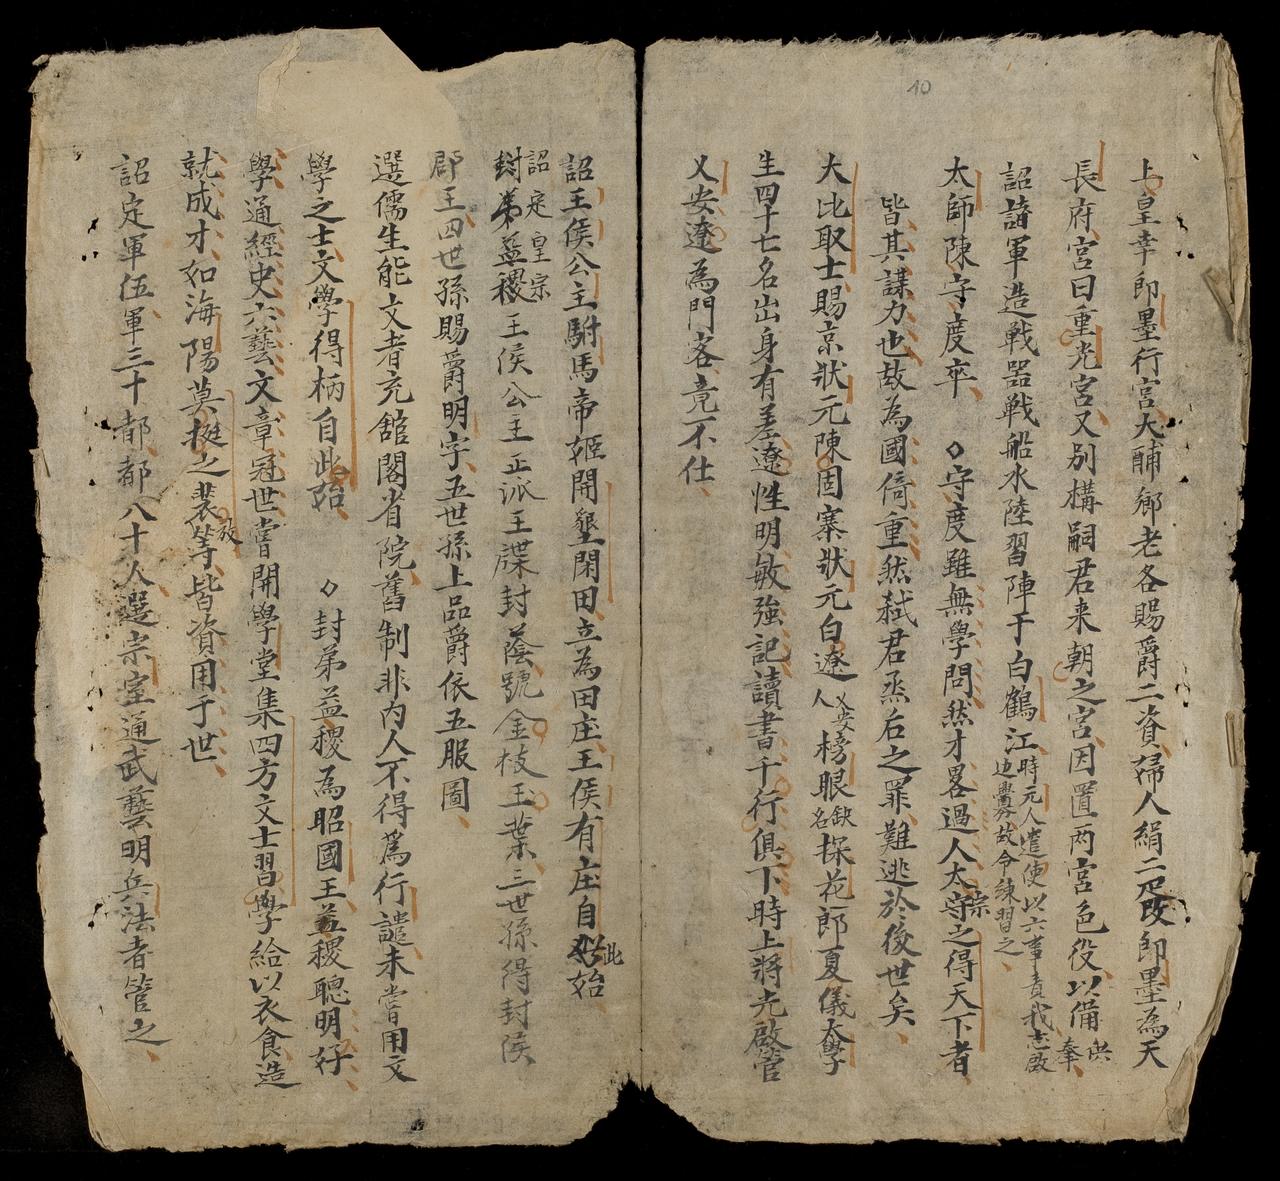 10
上皇幸即墨行宮大酺鄉老各賜爵二資婦人絹二疋改即墨為天
長府宮曰重光宮又別構嗣君来朝之宮因置兩宮色役以備供奉
詔諸軍造戦器戦船水陸習陣于白鶴江時元人遣使以六事責我志啟邊釁故令練習之
太師陳守度卒 ◇守度雖無學問然才畧過人太宗之得天下者
皆其謀力也故為國倚重然弒君烝后之罪難逃於後世矣
大比取士賜京狀元陳固寨狀元白遼乂安人榜眼缺名探花郎夏儀太學
生四十七名出身有差遼性明敏強記讀書千行俱下時上將光啟管
乂安遼為門客竟不仕
詔王侯公主駙馬帝姬開墾閑田立為田庄王侯有庄自此始
詔定皇宗
封弟益稷王侯公主正派王牒封蔭號金枝玉葉三世孫得封侯
郡王四世孫賜爵明字五世孫上品爵依五服圖
選儒生能文者充舘閣省院舊制非内人不得為行譴未嘗用文
學之士文學得柄自此始 ◇封弟益稷為昭國王益稷聰明好
學通經史六藝文章冠世嘗開學堂集四方文士習學給以衣食造
就成才如海陽莫挺之裴放等皆資用于世
詔定軍伍軍三十都都八十人選宗室通武藝明兵法者管之